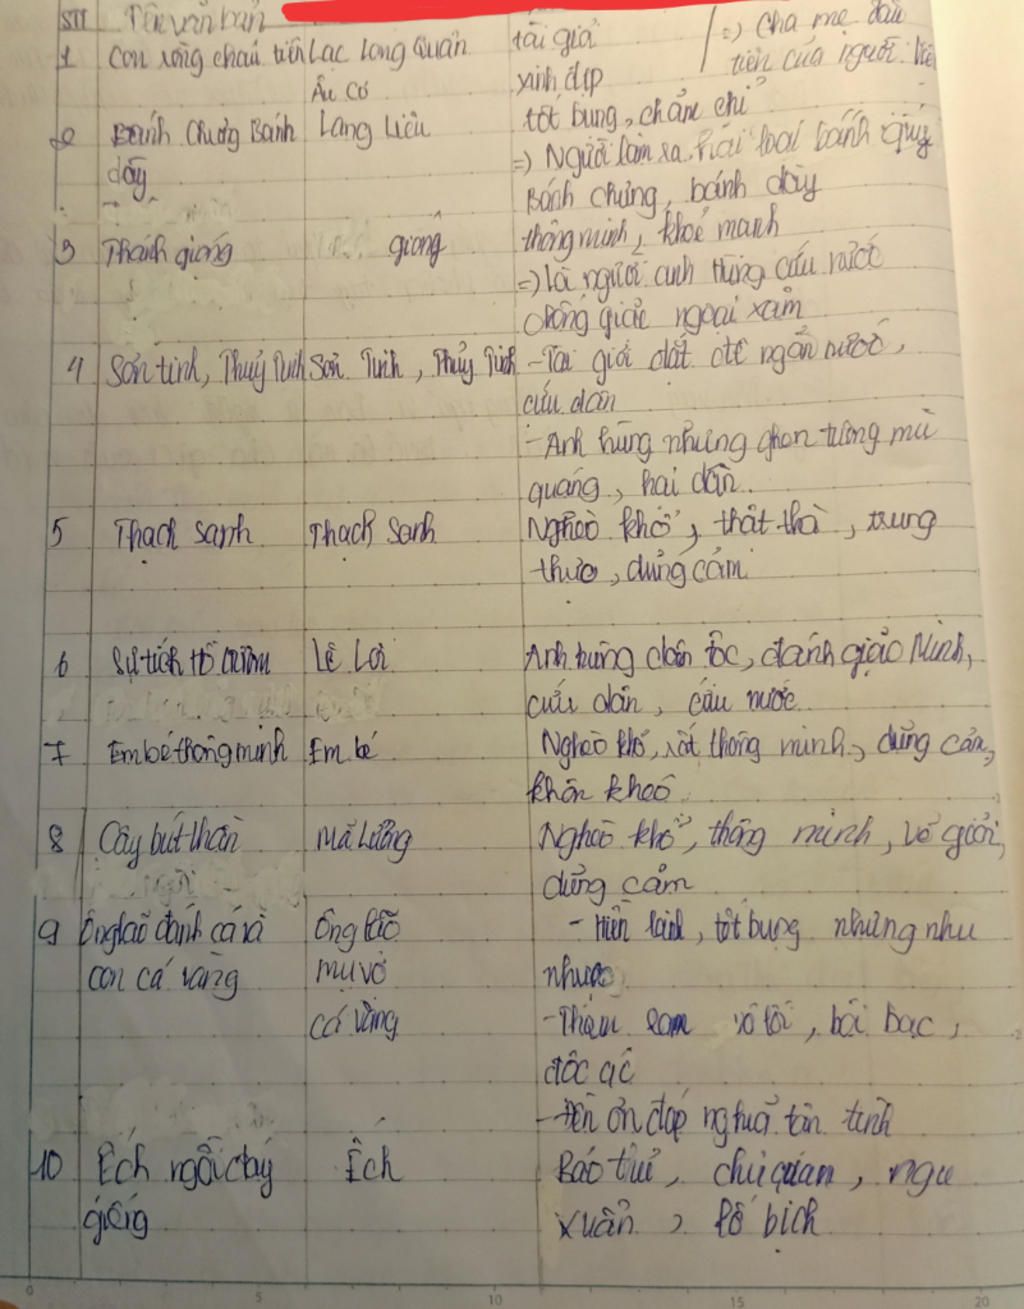 STT Tên văn bản
1 Con rồng cháu tiên Lạc Long Quân tài giả => Cha mẹ đầu
Âu Cơ xinh đẹp tiên của người Việ
2 Bánh Chưng Bánh Lang Liêu tốt bụng, chăm chỉ
dầy => Người làm ra hai loại bánh quý
Bánh chưng, bánh dày
3 Thánh gióng gióng thông minh, khoẻ mạnh
=> là người anh hùng cứu nước
chống giặc ngoại xâm
4 Sơn tinh, Thuỷ Tinh Sơn Tinh, Thuỷ Tinh - Tài giỏi đắt đê ngăn nước,
cứu dân
- Anh hùng nhưng ghen tuông mù
quáng, hại dân.
5 Thạch Sanh Thạch Sanh Nghèo khổ, thật thà, trung
thực, dũng cảm
6 Sự tích Hồ Gươm Lê Lợi Anh hùng dân tộc, đánh giặc Minh,
cứu dân, cứu nước.
7 Em bé thông minh Em bé Nghèo khổ, rất thông minh, dũng cản,
khôn khéo
8 Cây bút thần Mã Lương Nghèo khổ, thông minh, vẽ giỏi,
dũng cảm
9 Ông lão đánh cá và Ông lão - Hiền lành, tốt bụng nhưng nhu
con cá vàng mụ vợ nhược
cá vàng - Tham lam vô lối, bội bạc,
độc ác
- đền ơn đáp nghĩa tận tình
10 Ếch ngồi đáy Ếch Báo tuỉ, chủ quan, ngu
giếng xuẩn, lố bịch
0 5 10 15 20